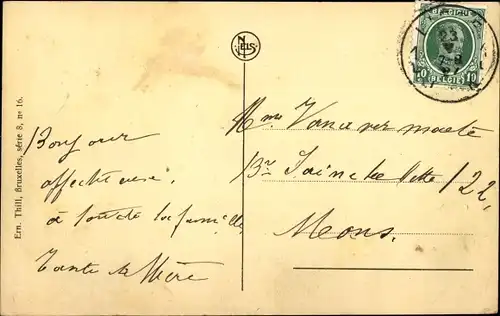 NELS
BELGIQUE
10 BELGIË 10
Ern. Thill, Bruxelles, série 8, no 16.
Bonjour
affectueux
à toute la famille
Tante
Mme
Bd Sainctelette 122
Mons.